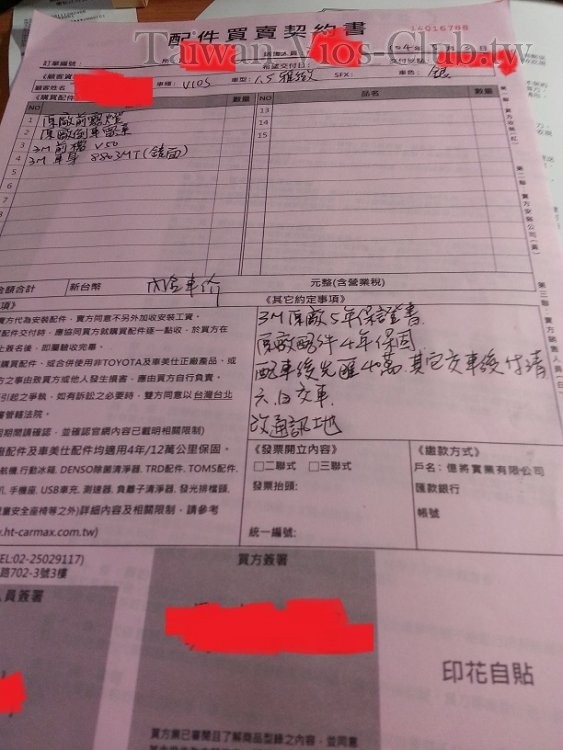 Taiwan Vios Club.tw
配件買賣契約書
14016788
訂單編號:
希望交付日
顧客姓名 車種: VIOS 車型: 1.5雅緻 SFX: 車色: 銀
《購買配件 數量 NO 品名 數量
NO
1 原廠前霧燈 13
2 原廠倒車雷達 14
3 3M 前檔 V50 15
4 3M 車身 8803MT(鏡面)
5
6
7
8
金額合計 新台幣 內含車價 元整(含營業稅)
項》 《其它約定事項》
賣方代為安裝配件,賣方同意不另外加收安裝工資。 3M原廠5年保證書
配件交付時,應協同買方就購買配件逐一點收,於買方在 原廠配件4年保固
上簽名後,即屬驗收完畢。 配車後先匯40萬 其它交車後付清
購買配件、或合併使用非TOYOTA及車美仕正廠產品、或 六日交車
方之事由致買方或他人發生損害,應由買方自行負責。 改通訊地
引起之爭執,如有訴訟之必要時,雙方同意以台灣台北
審管轄法院。
固期間請確認,並確認官網內容已載明相關限制)
配件及車美仕配件均適用4年/12萬公里保固。 《發票開立內容》 《繳款方式》
航機、行動冰箱, DENSO除菌清淨器, TRD配件, TOMS配件, □二聯式 □三聯式 戶名:億將實業有限公司
機, 手機座, USB車充, 測速器, 負離子清淨器, 發光排檔頭, 發票抬頭: 匯款銀行
兒童安全座椅等之外)詳細內容及相關限制,請參考 帳號
w.ht-carmax.com.tw) 統一編號:
TEL:02-25029117) 買方簽署
路702-3號3樓
人員簽署
印花自貼
買方業已審閱且了解商品型錄之內容,並同意